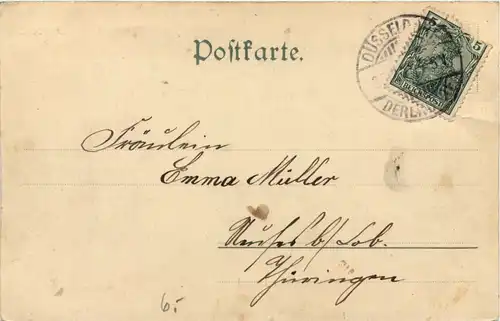 Postkarte.
DÜSSELD
5
DEREN
Fräulein
Emma Müller
Neuses b/ Cob.
Thüringen
6.-